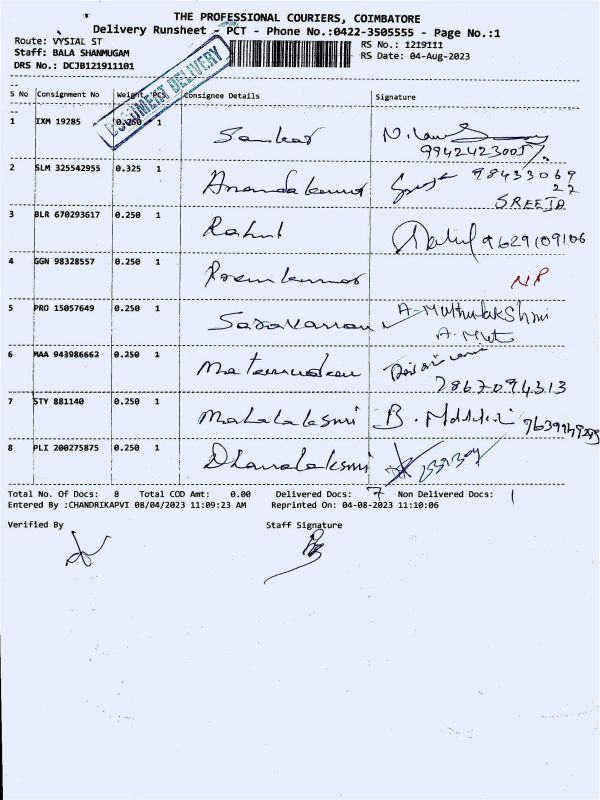 THE PROFESSIONAL COURIERS, COIMBATORE
Delivery Runsheet - PCT - Phone No.:0422-3505555 - Page No.:1
Route: VYSIAL ST
RS No.: 1219111
Staff: BALA SHANMUGAM
RS Date: 04-Aug-2023
DRS No.: DCJB121911101
DOCUMENT DELIVERY
S No Consignment No Weight PCS Consignee Details Signature
1 IXM 19285 0.250 1 Sankar
9942423005
2 SLM 325542955 0.325 1 Anandakumar 98433069
22
SREEJA
3 BLR 670293617 0.250 1 Rahul Rahul 9629109106
4 GGN 98328557 0.250 1 Premkumar NP
5 PRO 15057649 0.250 1 Saravanan A-Muthulakshmi
A. Mut
6 MAA 943986662 0.250 1
2867094313
7 STY 881140 0.250 1 Mahalaksmi B.
8 PLI 200275875 0.250 1 Dhanalaksmi
Total No. Of Docs: 8 Total COD Amt: 0.00 Delivered Docs: 7 Non Delivered Docs: 1
Entered By :CHANDRIKAPVI 08/04/2023 11:09:23 AM Reprinted On: 04-08-2023 11:10:06
Verified By Staff Signature